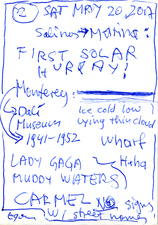 (2) SAT MAY 20, 2017
Salinas → Marina:
FIRST SOLAR
HURRAY!
Monterey:
Dali
Museum
1941-1952
ice cold low
lying thin cloud
Wharf
LADY GAGA
MUDDY WATERS
Haha
CARMEL NO signs
W/ street name